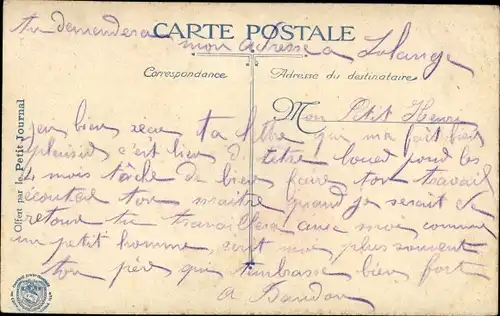 CARTE POSTALE
tu demandera
mon adresse a Solange
Correspondance
Adresse du destinataire
Offert par le Petit Journal
Mon Petit Henri
bien recu ta lettre qui ma fait bien
plaisir c'est bien d titre loued pend les
4 mois tâche de bien faire ton travail
écouter ton maitre quand je serait de
retour tu travaillera avec moi comme
un petit homme, écrit moi plus souvent
ton père que t'embrasse bien fort